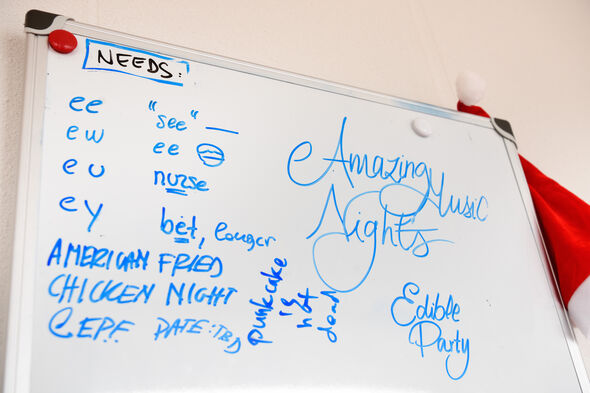 NEEDS:
ee "see"
ew ee
eu nurse
ey bet, longer
AMERICAN FRIED
CHICKEN NIGHT
DATE: TBD
punkcake
is
not
dead
Amazing Music
Nights
Edible
Party